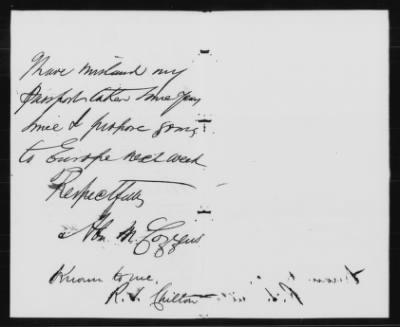 I have mislaid my
Passport taken some years
since & propose going
to Europe next week
Respectfully
Abm. M. Cozzens
Known to me.
R. S. Chilton